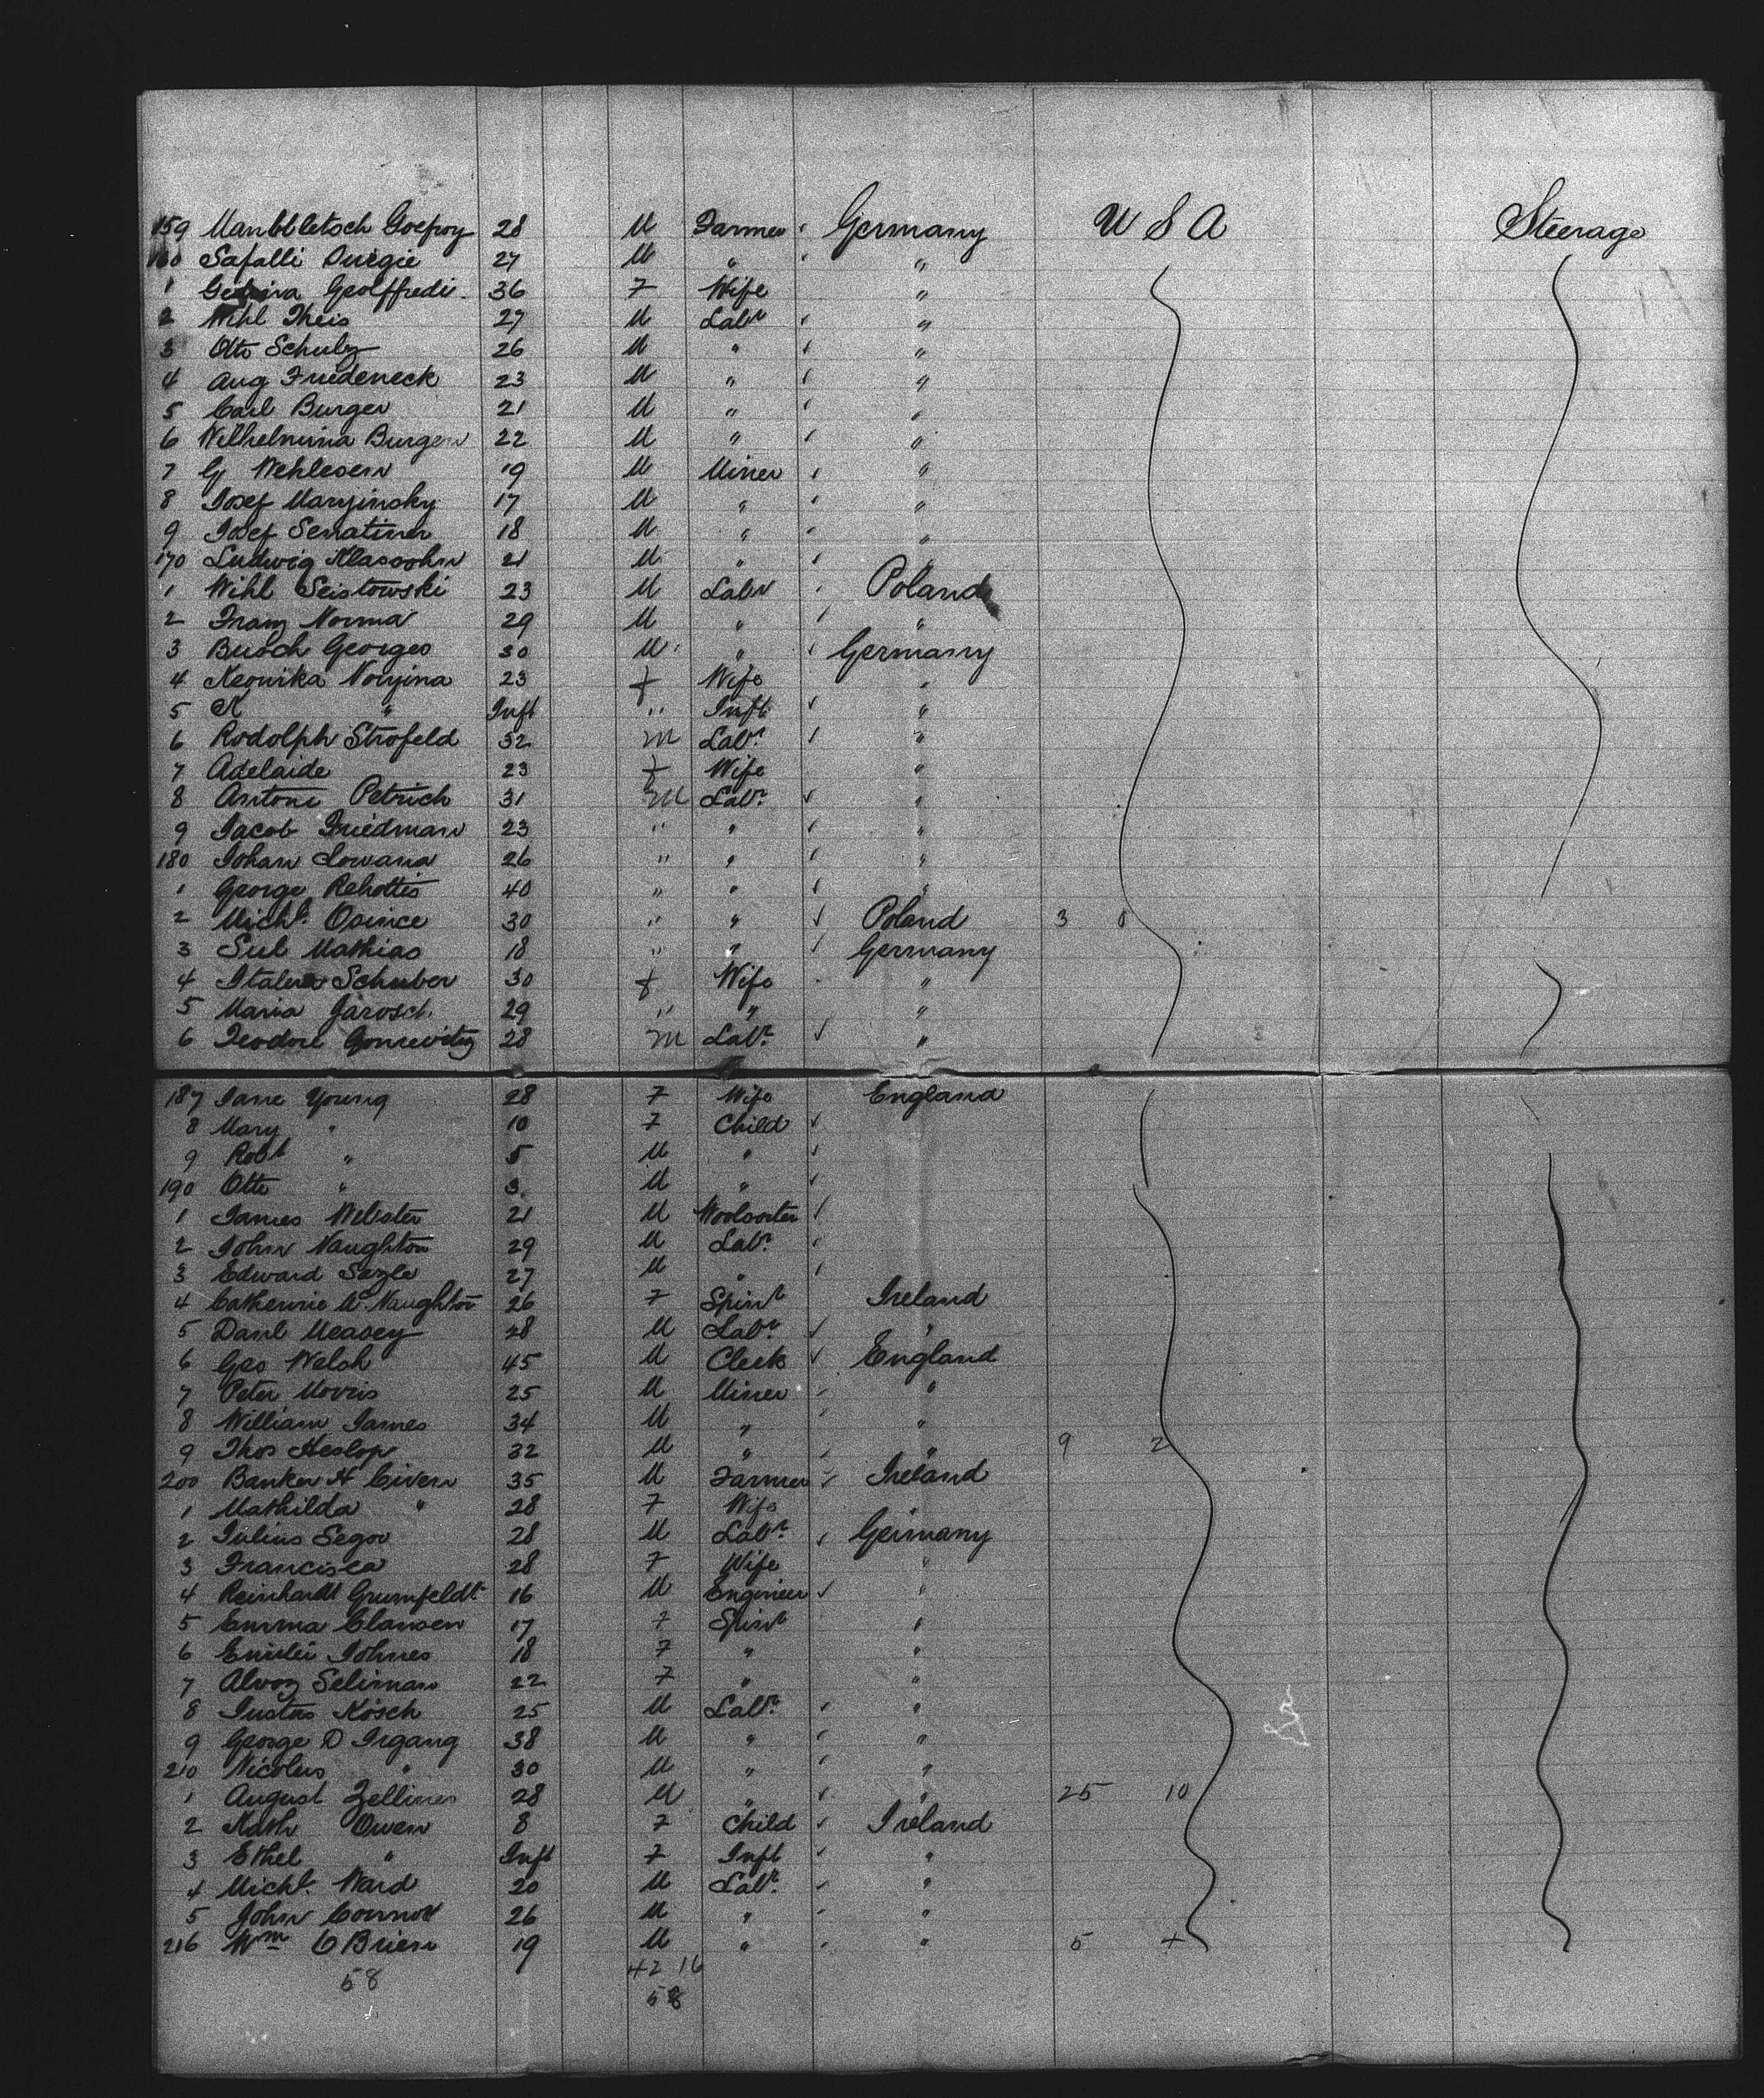 159 Manbbletsch Goefroy 28 M Farmer Germany U S A Steerage
160 Safalli Duegie 27 M " "
1 Geolffredi 36 F Wife "
2 Wihl Theis 27 M Labr "
3 Otto Schulz 26 M " "
4 Aug Friedeneck 23 M " "
5 Carl Burger 21 M " "
6 Wilhelmina Burger 22 M " "
7 Wehlesen 19 M Miner "
8 Josef Maryinsky 17 M " "
9 Josef Senatiner 18 M " "
170 Ludwig Klassohn 21 M " "
1 Wihl Seistowski 23 M Labr Poland
2 Franz Norma 29 M " "
3 Busch Georges 30 M " Germany
4 Keonika Noryina 23 f Wife "
5 K " Inft " Inft "
6 Rodolph Strofeld 32 m Labr "
7 Adelaide 23 f Wife "
8 Antone Petrich 31 m Labr "
9 Jacob Friedman 23 " " "
180 Johan Lowana 26 " " "
1 George Rehottis 40 " " "
2 Michl. Osince 30 " " Poland 3 0
3 Sul Mathias 18 " " Germany
4 Schuber 30 f Wife "
5 Maria Jarosch 29 " " "
6 Teodore Gonsevitz 28 m Labr "
187 Jane Young 28 F Wife England
8 Mary " 10 F Child
9 Robt " 5 M "
190 Otto " 3 M "
1 James Webster 21 M Woolsorter
2 John Naughton 29 M Labr
3 Edward Sazle 27 M "
4 Catherine Mc Naughton 26 F Spinr Ireland
5 Danl Measey 28 M Labr "
6 Geo Welsh 45 M Clerk England
7 Peter Morris 25 M Miner "
8 William James 34 M " "
9 Thos Heslop 32 M " " 9 2
200 Banker H Civern 35 M Farmer Ireland
1 Mathilda " 28 F Wife
2 Julius Segor 28 M Labr Germany
3 Francisca 28 F Wife "
4 Reinhardt Grumfeldt 16 M Engineer "
5 Emma Clausen 17 F Spinr "
6 Emilie Johnes 18 F " "
7 Alvoz Seliman 22 F " "
8 Gustos Kosch 25 M Labr "
9 George D Irgang 38 M " "
210 Nicolus " 30 M " "
1 August Zellines 28 M " " 25 10
2 Kath Owen 8 F Child Ireland
3 Ethel " Inft F Inft "
4 Michl. Ward 20 M Labr "
5 John Connor 26 M " "
216 Wm O Brien 19 M " " 5 4
58 42 16
58